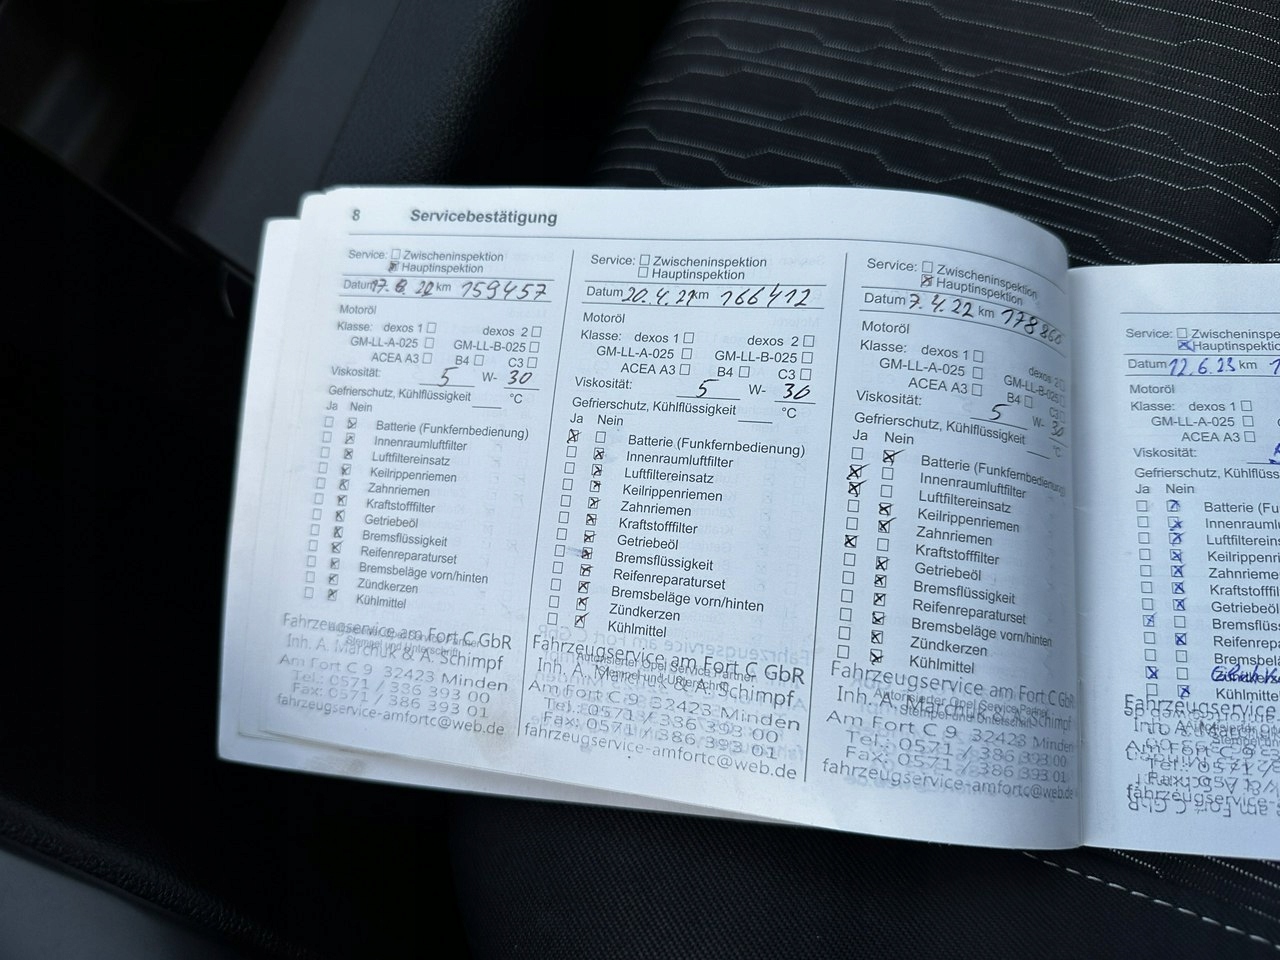 8 Servicebestätigung
Service: Zwischeninspektion
Hauptinspektion
Datum km 159457
Motoröl
Klasse: dexos 1 dexos 2
GM-LL-A-025 GM-LL-B-025
ACEA A3 B4 C3
Viskosität: 5 W- 30
Gefrierschutz, Kühlflüssigkeit °C
Ja Nein
Batterie (Funkfernbedienung)
Innenraumluftfilter
Luftfiltereinsatz
Keilrippenriemen
Zahnriemen
Kraftstofffilter
Getriebeöl
Bremsflüssigkeit
Reifenreparaturset
Bremsbeläge vorn/hinten
Zündkerzen
Kühlmittel
Fahrzeugservice am Fort C GbR
Inh. A. Marchuk & A. Schimpf
Am Fort C 9 32423 Minden
Tel.: 0571 / 386 393 00
Fax: 0571 / 386 393 01
fahrzeugservice-amfortc@web.de
Service: Zwischeninspektion
Hauptinspektion
Datum 20.4.21 km 166412
Motoröl
Klasse: dexos 1 dexos 2
GM-LL-A-025 GM-LL-B-025
ACEA A3 B4 C3
Viskosität: 5 W- 30
Gefrierschutz, Kühlflüssigkeit °C
Ja Nein
Batterie (Funkfernbedienung)
Innenraumluftfilter
Luftfiltereinsatz
Keilrippenriemen
Zahnriemen
Kraftstofffilter
Getriebeöl
Bremsflüssigkeit
Reifenreparaturset
Bremsbeläge vorn/hinten
Zündkerzen
Kühlmittel
Fahrzeugservice am Fort C GbR
Autorisierter Opel Service Partner
Inh. A. Marchuk & A. Schimpf
Stempel und Unterschrift
Am Fort C 9 32423 Minden
Tel.: 0571 / 386 393 00
Fax: 0571 / 386 393 01
fahrzeugservice-amfortc@web.de
Service: Zwischeninspektion
Hauptinspektion
Datum 7.4.22 km 178860
Motoröl
Klasse: dexos 1 dexos 2
GM-LL-A-025 GM-LL-B-025
ACEA A3 B4 C3
Viskosität: 5 W- 30
Gefrierschutz, Kühlflüssigkeit °C
Ja Nein
Batterie (Funkfernbedienung)
Innenraumluftfilter
Luftfiltereinsatz
Keilrippenriemen
Zahnriemen
Kraftstofffilter
Getriebeöl
Bremsflüssigkeit
Reifenreparaturset
Bremsbeläge vorn/hinten
Zündkerzen
Kühlmittel
Fahrzeugservice am Fort C GbR
Autorisierter Opel Service Partner
Inh. A. Marchuk & A. Schimpf
Stempel und Unterschrift
Am Fort C 9 32423 Minden
Tel.: 0571 / 386 393 00
Fax: 0571 / 386 393 01
fahrzeugservice-amfortc@web.de
Service: Zwischeninspe
Hauptinspektio
Datum 12.6.23 km 1
Motoröl
Klasse: dexos 1
GM-LL-A-025
ACEA A3
Viskosität:
Gefrierschutz, Kühlflüssigke
Ja Nein
Batterie (Fu
Innenrauml
Luftfilterein
Keilrippenri
Zahnrieme
Kraftstofff
Getriebeö
Bremsflüs
Reifenrepa
Bremsbelä
Kühlmitte
Fahrzeugservice
fahrzeugservice-